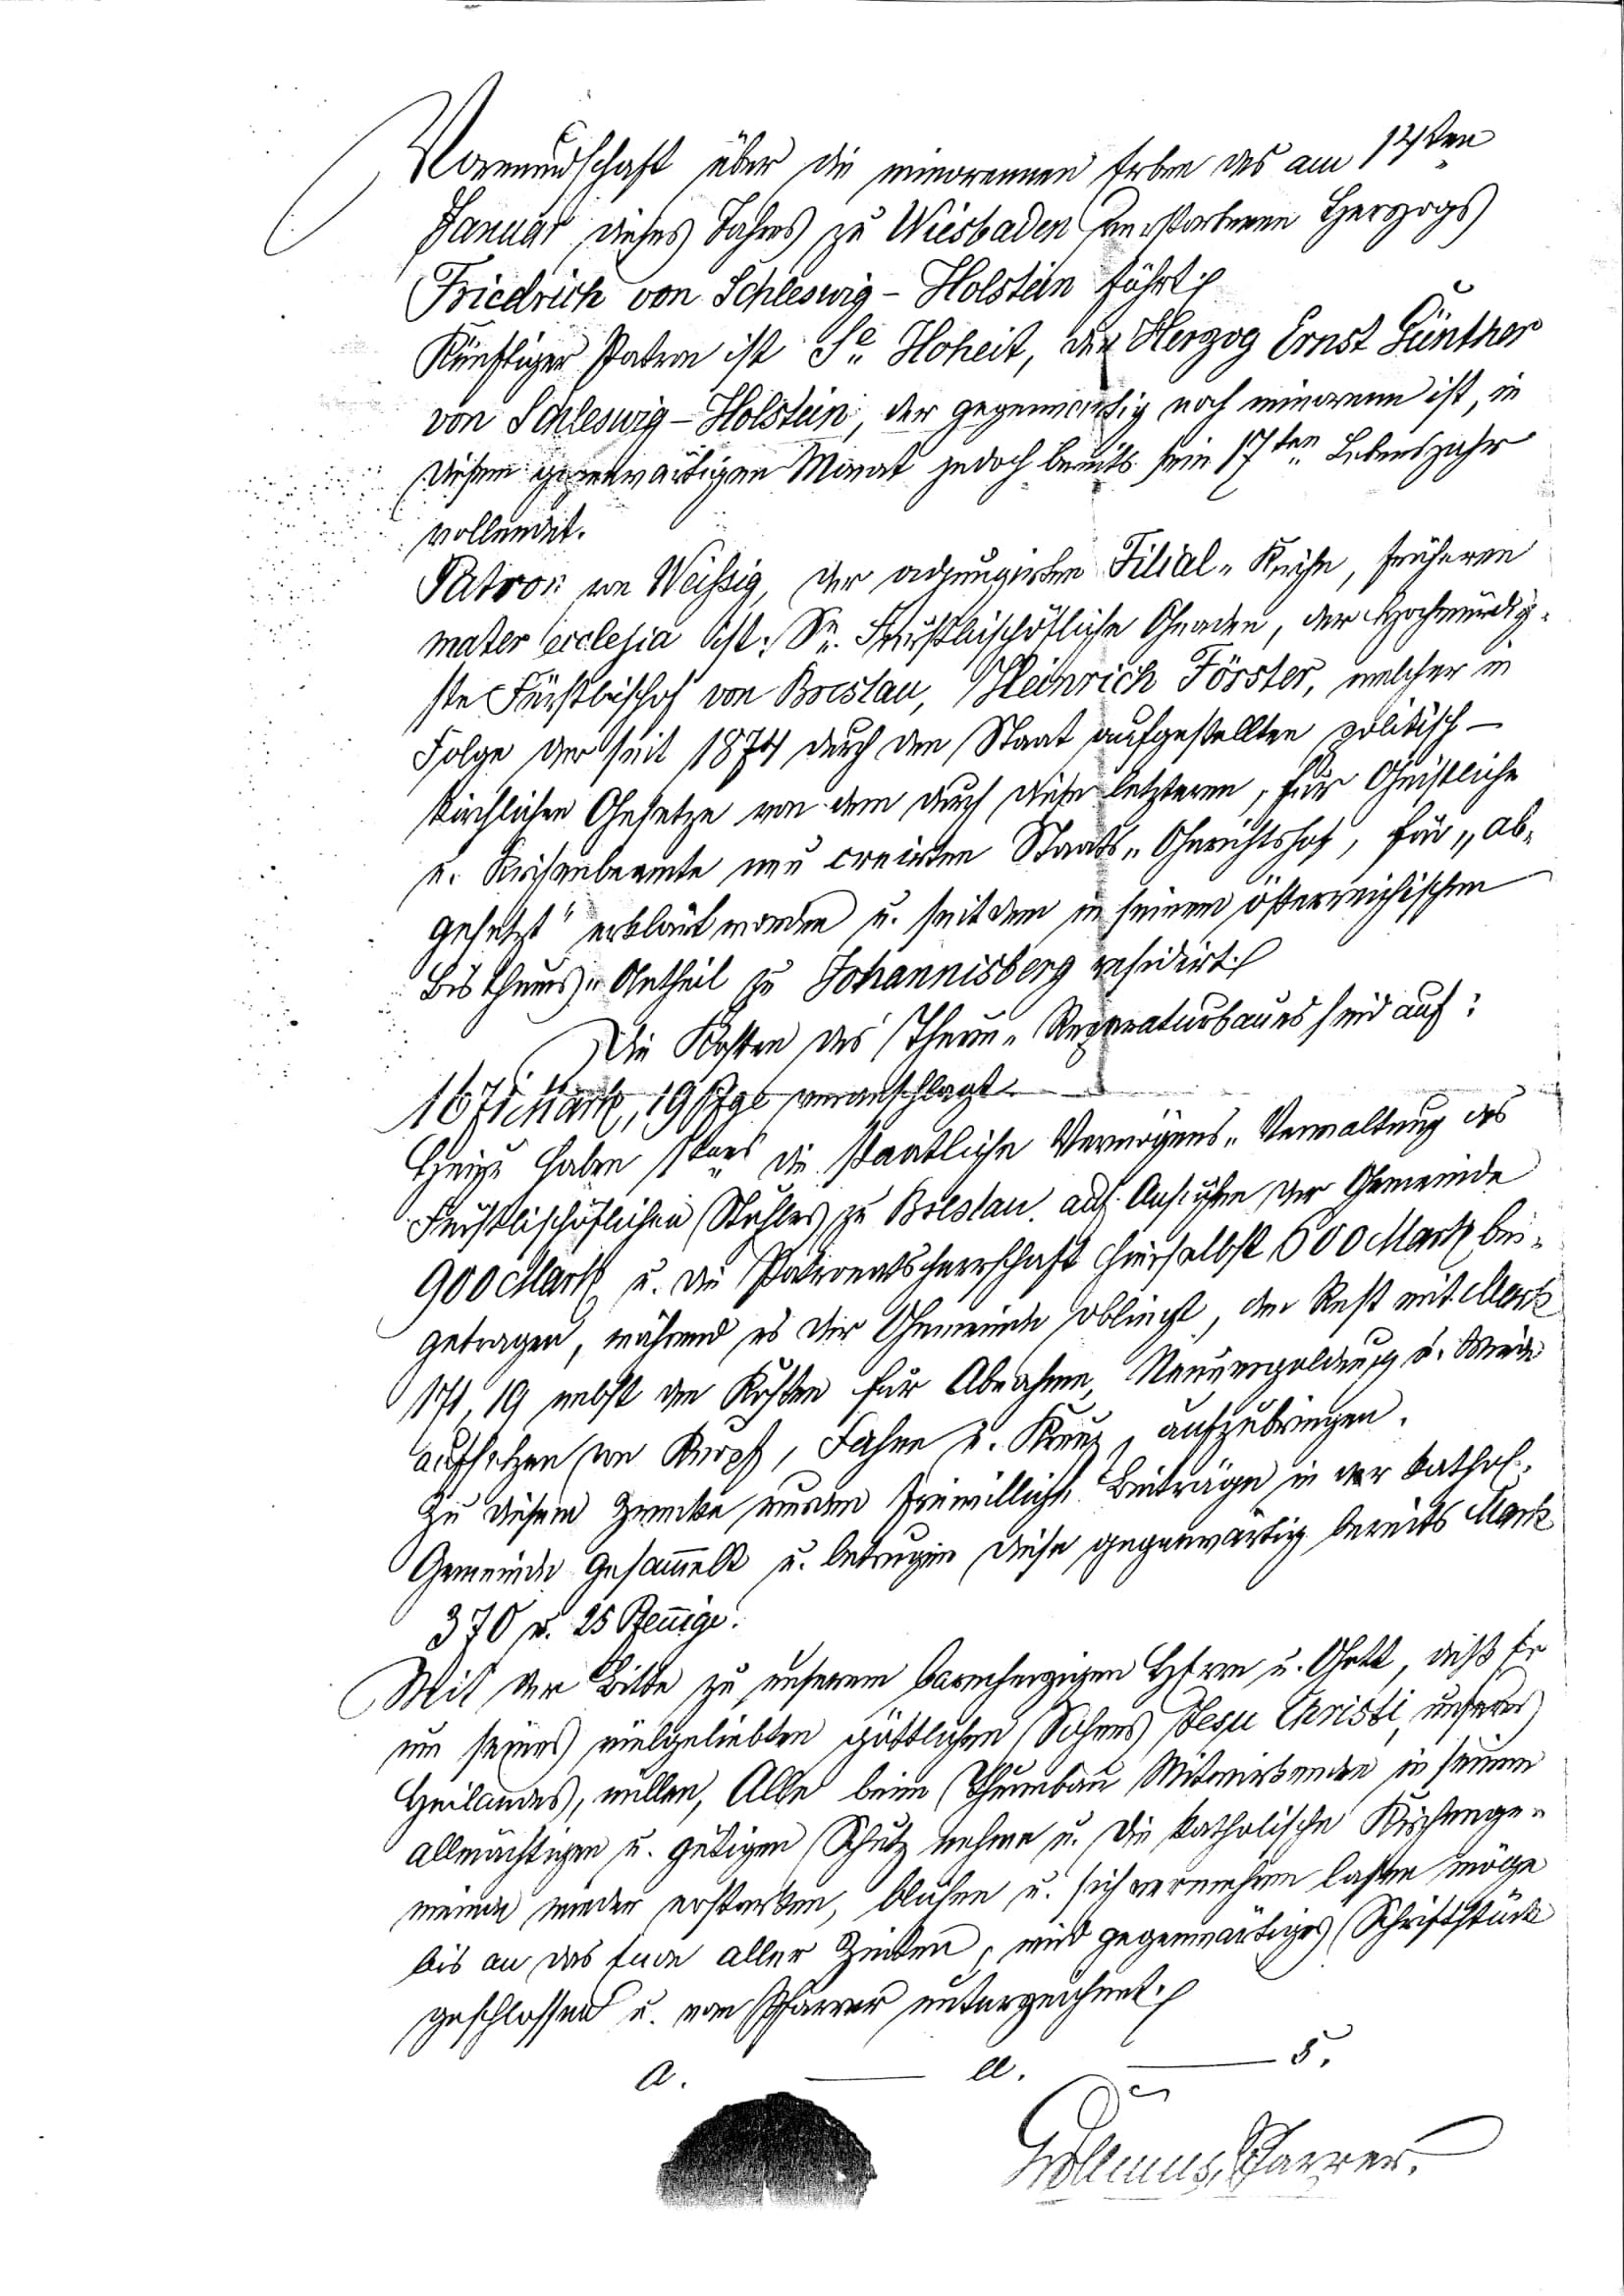 Vormundschaft über die minorennen Erben des am 14ten
Januar dieses Jahres zu Wiesbaden verstorbenen Herzogs
Friedrich von Schleswig-Holstein führt.
Künftiger Patron ist Se Hoheit, der Herzog Ernst Günther
von Schleswig-Holstein, der gegenwärtig noch minorenn ist, in
diesem gegenwärtigen Monat jedoch bereits sein 17ten Lebensjahr
vollendet.
Patron von Weißig, der adjungirten Filial-Kirche, früheren
mater ecclesia ist: Se. Fürstbischöfliche Gnaden, der Hochwürdig-
ste Fürstbischof von Breslau, Heinrich Förster, welcher in
Folge der seit 1874 durch den Staat aufgestellten politisch-
kirchlichen Gesetze von dem durch diese letzteren, für Geistliche
u. Kirchenbeamte neu creirten Staats-Gerichtshof, für „ab-
gesetzt" erklärt worden u. seitdem in seinem österreichischen
Bisthums-Antheil zu Johannisberg residirt.
Die Kosten des Thurm-Reparaturbaues sind auf:
1671 Mark, 19 Pfge veranschlagt.
Hierzu haben die staatliche Vermögens-Verwaltung des
Fürstbischöflichen Stuhles zu Breslau auf Ansuchen der Gemeinde
900 Mark u. die Patronatsherrschaft hierselbst 600 Mark bei-
getragen, während es der Gemeinde obliegt, den Rest mit Mark
171,19 nebst den Kosten für Abnahme, Neuvergoldung u. Wieder
aufsetzen von Knopf, Fahne u. Kreuz, aufzubringen.
Zu diesem Zwecke wurden freiwillige Beiträge in der kathol.
Gemeinde gesam̅elt u. betrugen diese gegenwärtig bereits Mark
370 u. 25 Pfen̅ige.
Mit der Bitte zu unserem barmherzigen Herrn u. Gott, daß Er
um seines vielgeliebten göttlichen Sohnes Jesu Christi, unseres
Heilandes, willen, Alle beim Thurmbau Mitwirkenden in seinen
allmächtigen u. gütigen Schutz nehme u. die katholische Kirchenge-
meinde wieder erstarken, blühen u. sich vermehren lassen möge
bis an das Ende aller Zeiten, wird gegenwärtiges Schriftstück
geschlossen u. vom Pfarrer unterzeichnet.
a. u. s.
Pfarrer.